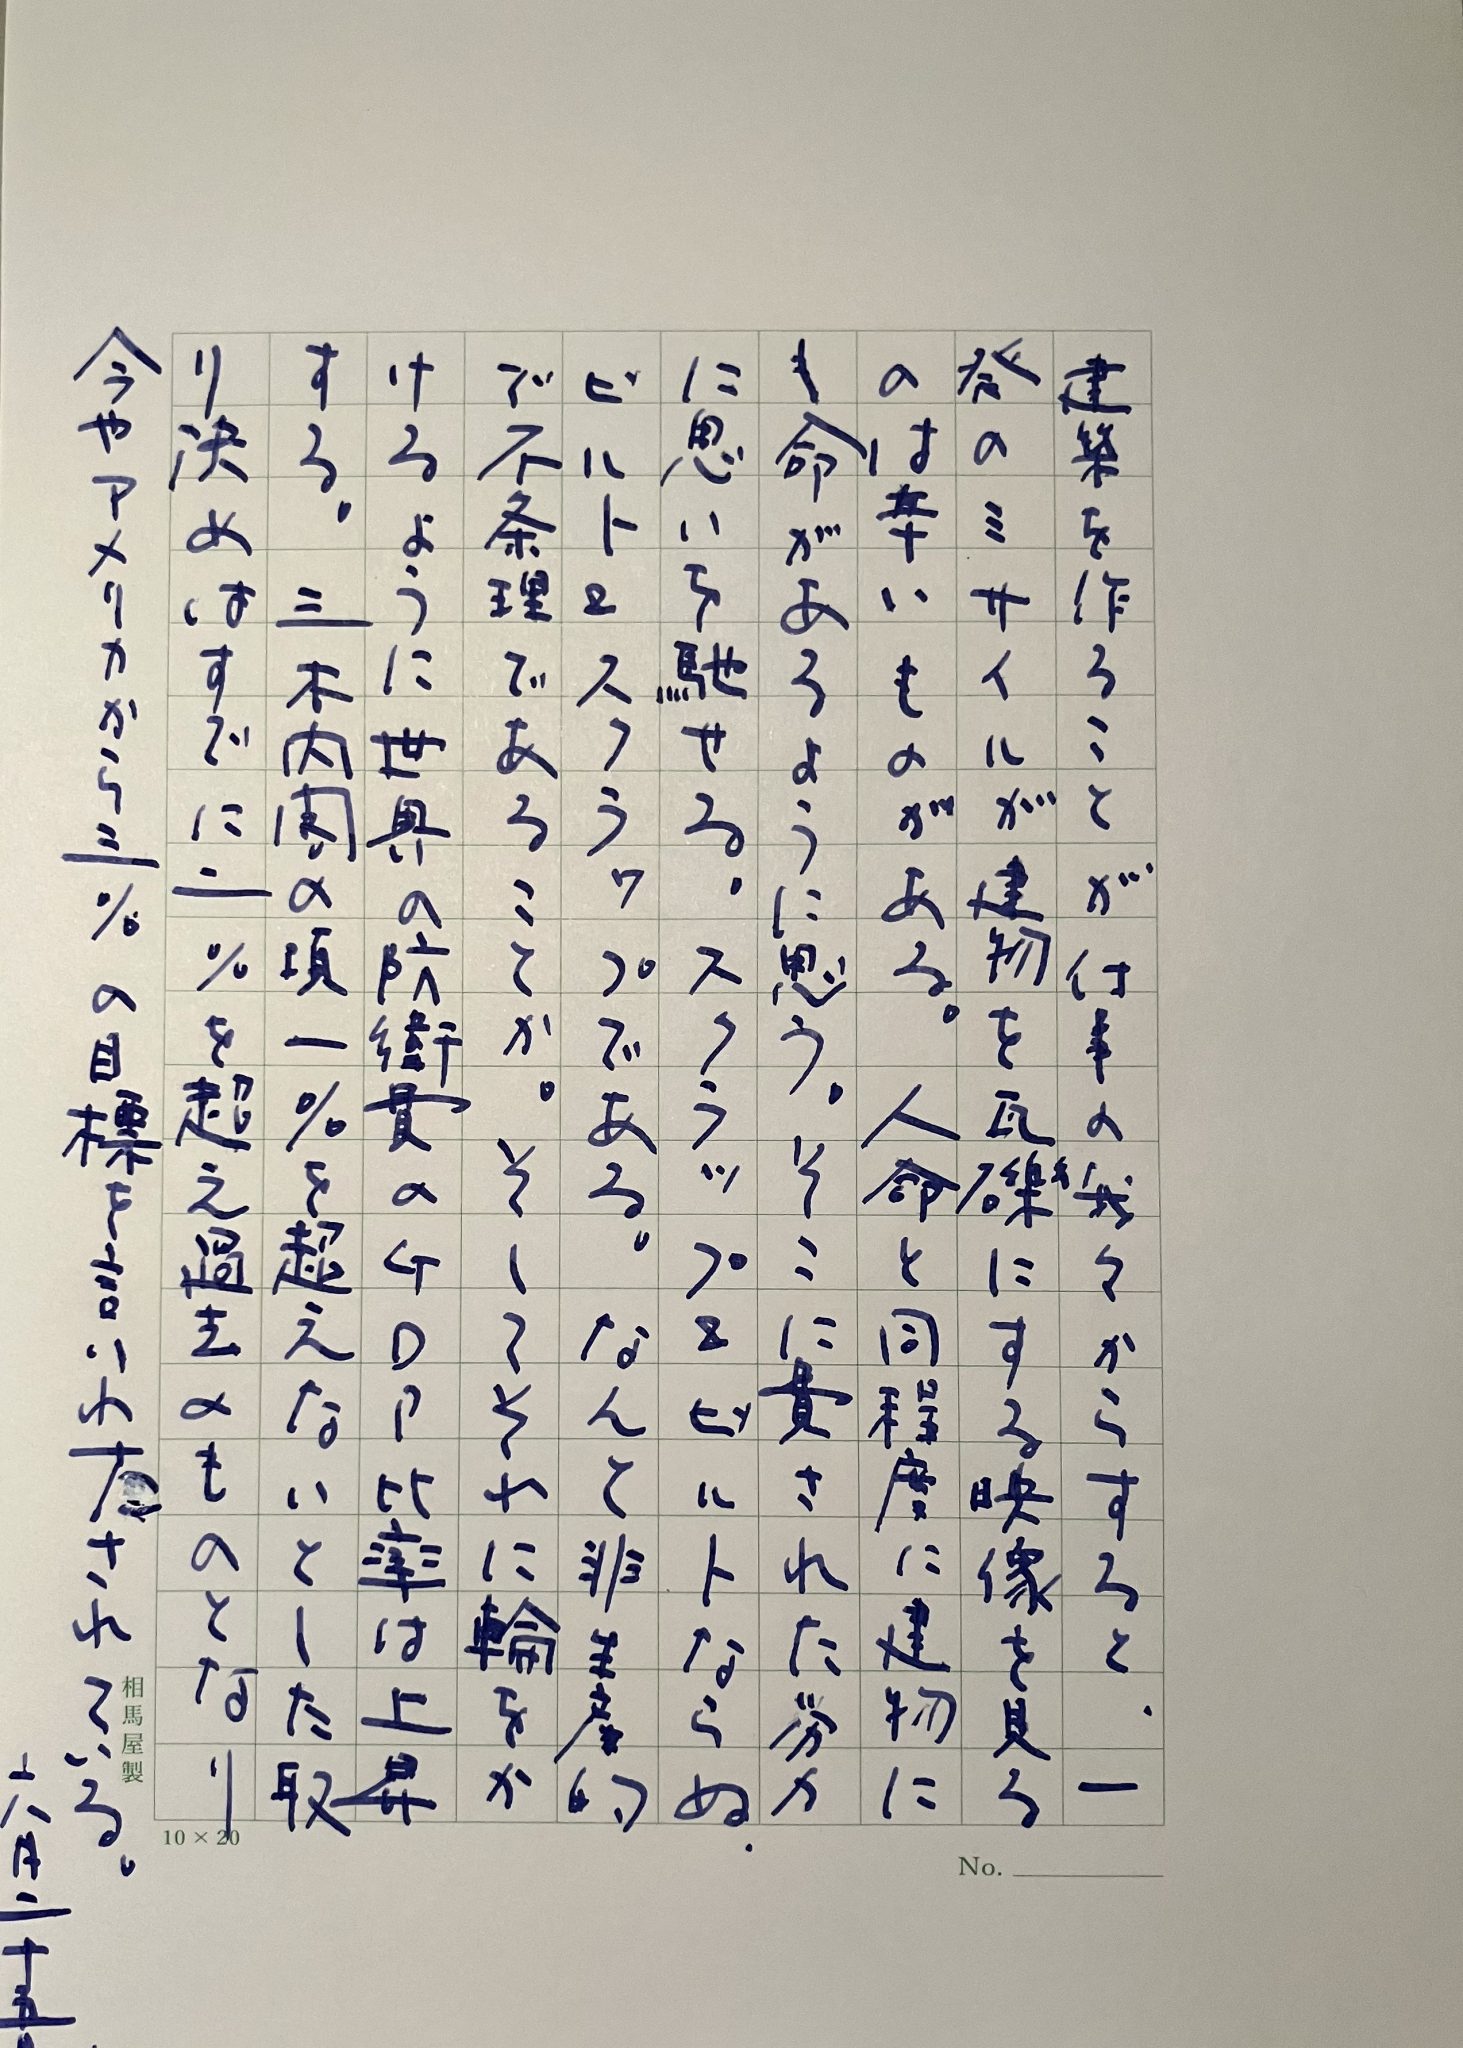 建築を作ることが仕事の我々からすると、一
発のミサイルが建物を瓦礫にする映像を見る
のは辛いものがある。人命と同程度に建物に
も命があるように思う。そこに費された労力
に思いを馳せる。スクラップ&ビルトならぬ、
ビルト&スクラップである。なんて非生産的
で不条理であることか。そしてそれに輪をか
けるように世界の防衛費のGDP比率は上昇
する。三木内閣の頃一%を超えないとした取
り決めはすでに二%を超え過去のものとなり
今やアメリカから三%の目標を言いわたされている。
六月二十五
相馬屋製
10×20
No.